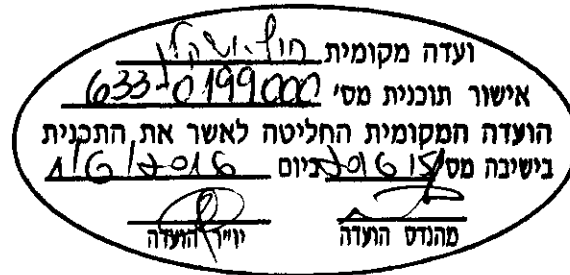 ועדה מקומית חוף אשקלון
אישור תוכנית מס' 633-0199000
הועדה המקומית החליטה לאשר את התכנית
בישיבה מס' ביום 1/6/2016
מהנדס הועדה יו"ר הועדה